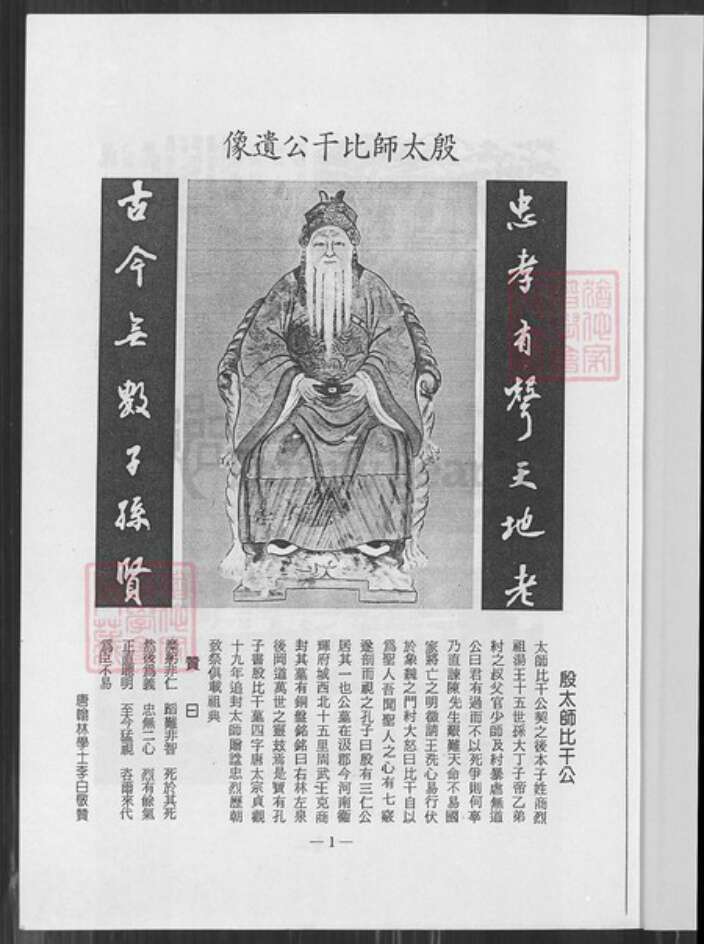 殷太師比干公遺像
忠孝有聲天地老
古今無數子孫賢
殷太師比干公
太師比干公契之後本子姓商烈
祖湯王十五世孫大丁子帝乙弟
村之叔父官少師及村暴虐無道
公曰君有過而不以死爭則何辜
乃直諫陳先生艱難天命不易國
家將亡之明徵請王洗心易行伏
於象魏之門村大怒曰比干自以
為聖人吾聞聖人之心有七竅
遂剖而視之孔子曰殷有三仁公
居其一也公墓在汲郡今河南衛
輝府城西北十五里周武王克商
封其墓有銅盤銘銘曰右林左泉
後岡道萬世之靈茲焉是寶有孔
子書殷比干墓四字唐太宗貞觀
十九年追封太師贈諡忠烈歷朝
致祭俱載祖典
贊曰
麋軀非仁 蹈難非智 死於其死
然後為義 忠無二心 烈有餘氣
正直聰明 至今猛視 咨爾來代
為臣不易
唐翰林學士李白敬贊
—1—